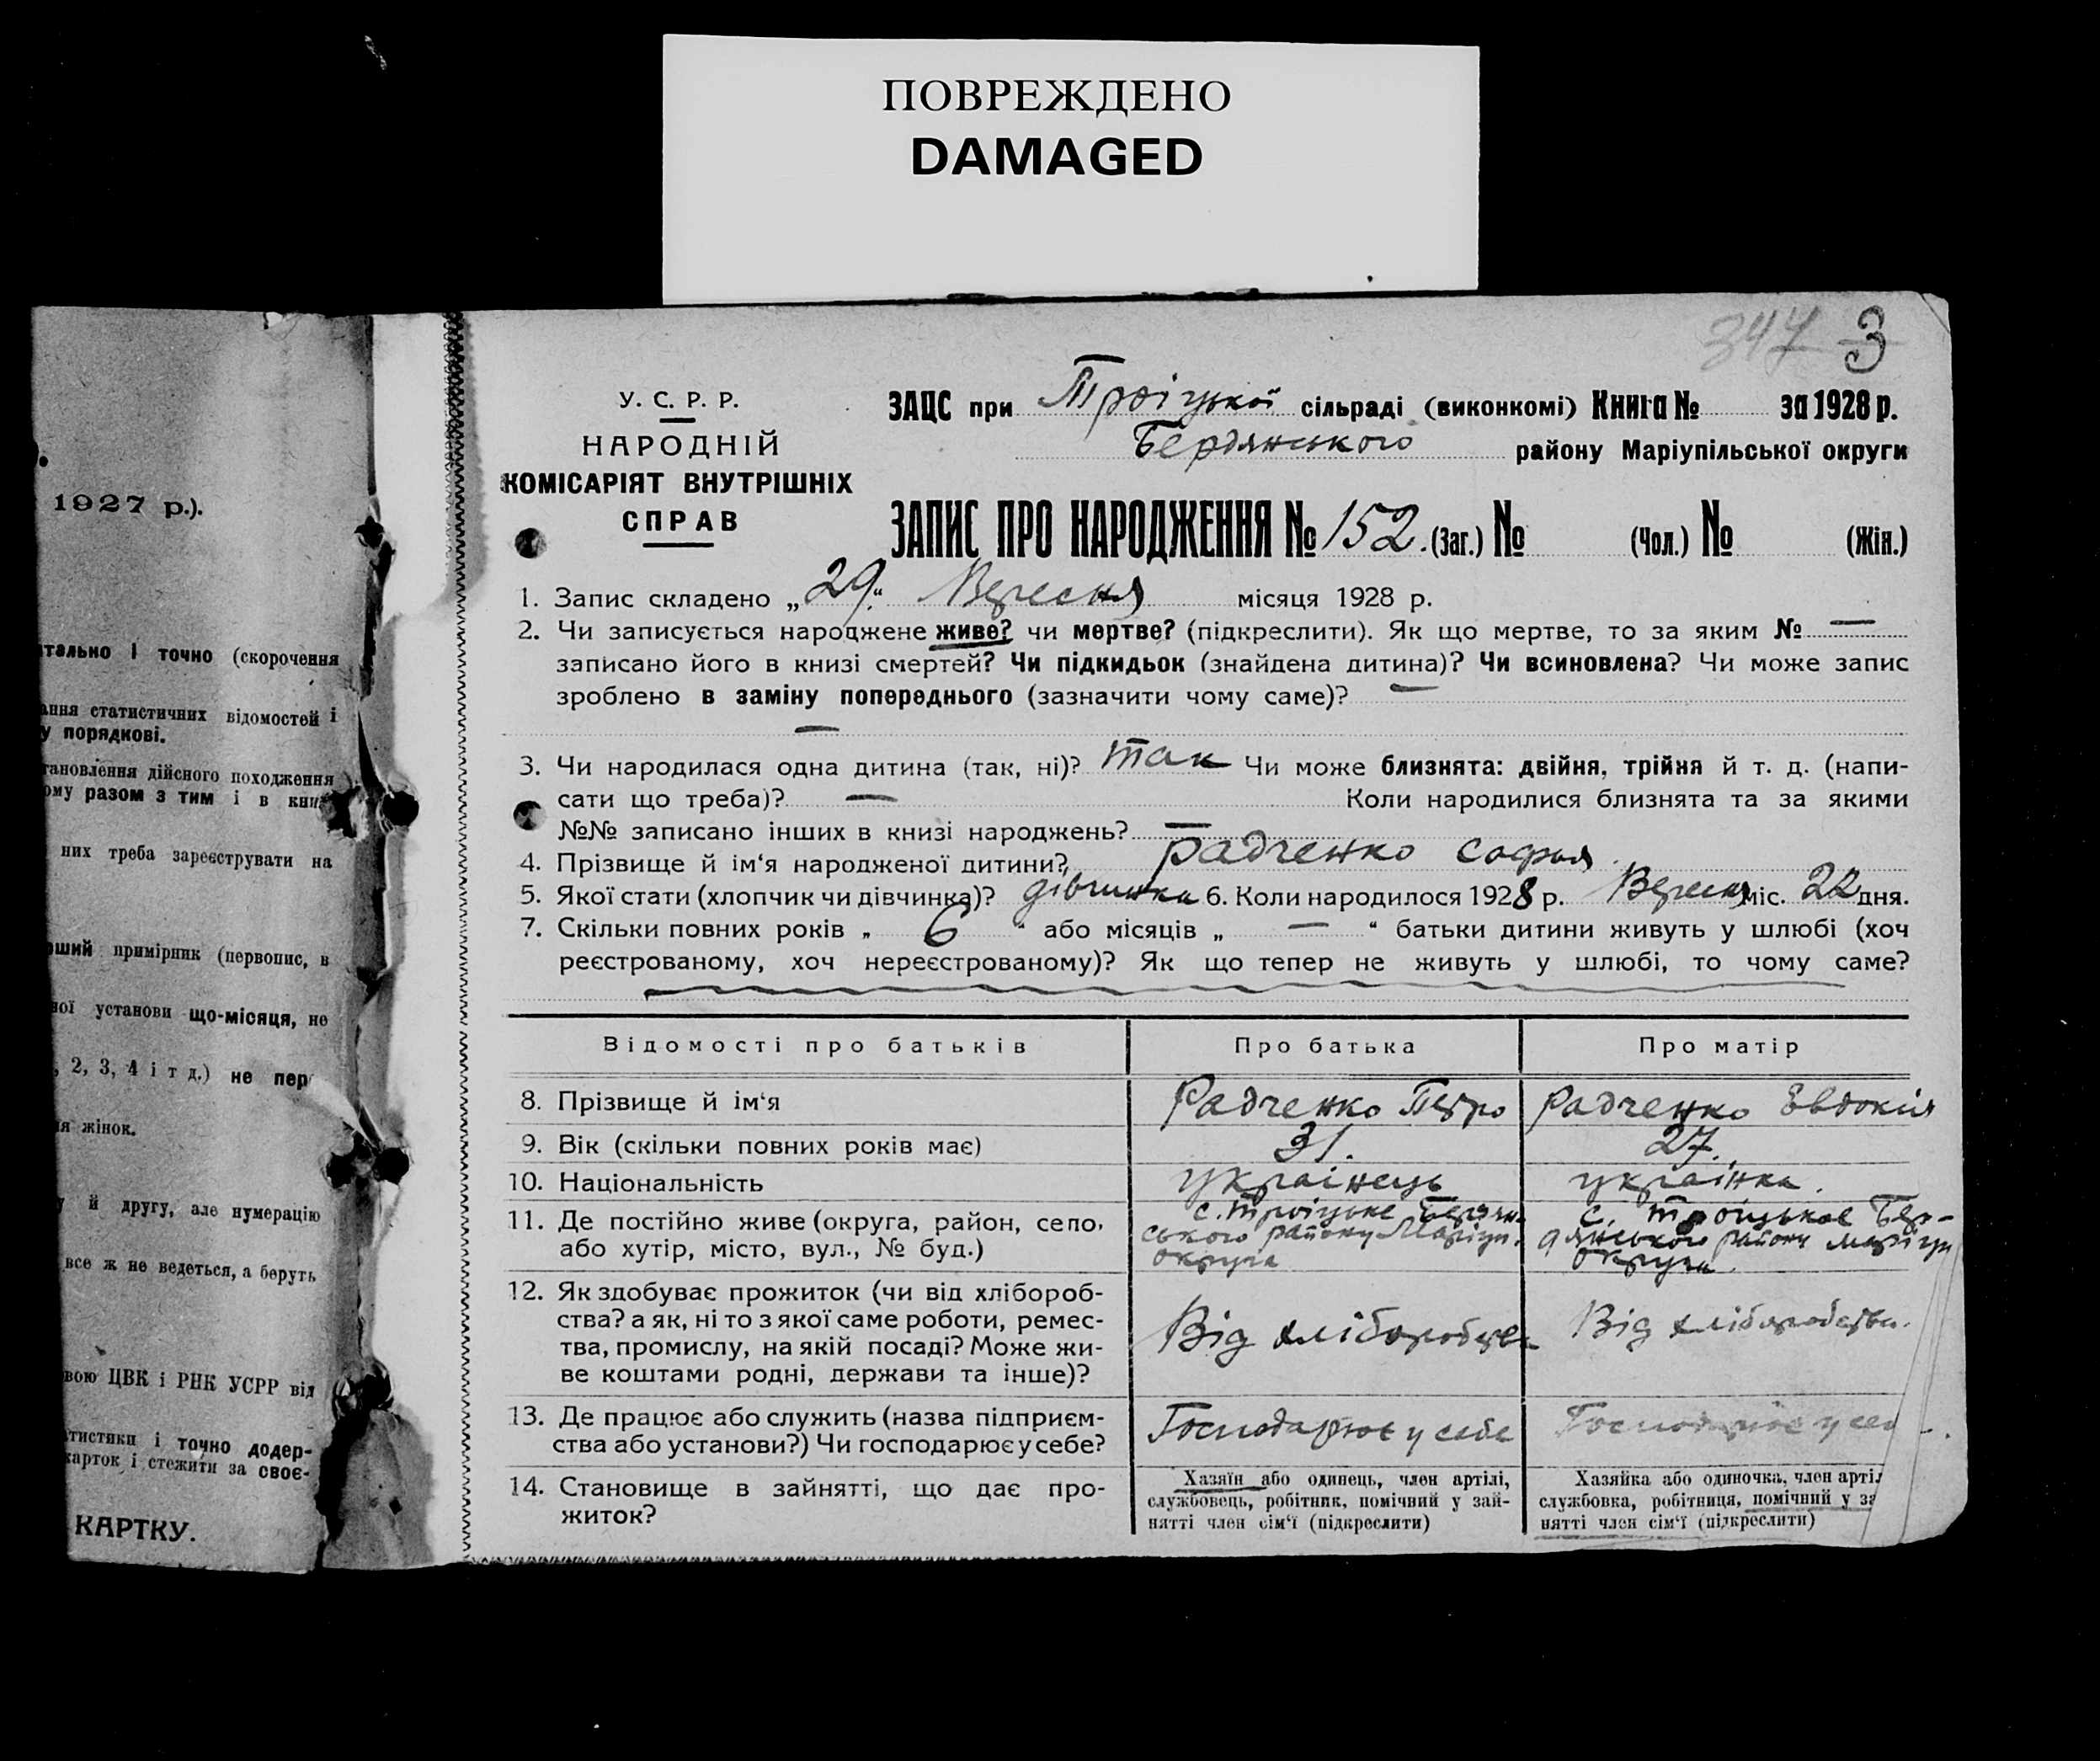 ПОВРЕЖДЕНО
DAMAGED
347 3
У. С. Р. Р.
НАРОДНІЙ
КОМІСАРІЯТ ВНУТРІШНІХ
СПРАВ
ЗАЦС при Троіцькоі сільраді (виконкомі) Книга № за 1928 р.
Бердянського району Маріупільської округи
ЗАПИС ПРО НАРОДЖЕННЯ № 152. (Заг.) № (Чол.) № (Жін.)
1. Запис складено „29.“ Вересня місяця 1928 р.
2. Чи записується народжене живе? чи мертве? (підкреслити). Як що мертве, то за яким № —
записано його в книзі смертей? Чи підкидьок (знайдена дитина)? Чи всиновлена? Чи може запис
зроблено в заміну попереднього (зазначити чому саме)? —
—
3. Чи народилася одна дитина (так, ні)? так Чи може близнята: двійня, трійня й т. д. (напи-
сати що треба)? — Коли народилися близнята та за якими
№№ записано інших в книзі народжень? —
4. Прізвище й ім‘я народженої дитини? Радченко Софья
5. Якої стати (хлопчик чи дівчинка)? дівчинка 6. Коли народилося 1928 р. Вересня міс. 22 дня.
7. Скільки повних років „ 6 “ або місяців „ — “ батьки дитини живуть у шлюбі (хоч
реєстрованому, хоч нереєстрованому)? Як що тепер не живуть у шлюбі, то чому саме?
Відомості про батьків Про батька Про матір
8. Прізвище й ім‘я Радченко Петро Радченко Евдокия
9. Вік (скільки повних років має) 31. 27.
10. Національність українець українка.
11. Де постійно живе (округа, район, село,
або хутір, місто, вул., № буд.)
с. Троіцьке Бердян-
ського району Маріуп.
округа
с. Троіцькое Бер-
дянського району Маріуп
округа.
12. Як здобуває прожиток (чи від хлібороб-
ства? а як, ні то з якої саме роботи, ремес-
тва, промислу, на якій посаді? Може жи-
ве коштами родні, держави та інше)?
Від хліборобства
Від хліборобства.
13. Де працює або служить (назва підприєм-
ства або установи?) Чи господарює у себе?
Господарює у себе
Господарює у
14. Становище в зайнятті, що дає про-
житок?
Хазяїн або одинець, член артілі,
службовець, робітник, помічний у зай-
нятті член сім‘ї (підкреслити)
Хазяйка або одиночка, член артіл
службовка, робітниця, помічний у за
нятті член сім‘ї (підкреслити)
1927 р.).
тально і точно (скорочення
ання статистичних відомостей і
у порядкові.
тановлення дійсного походження
ому разом з тим і в кни
них треба зареєструвати на
рший примірник (первопис, в
ної установи що-місяця, не
, 2, 3, 4 і т д.) не пер
ія жінок.
у й другу, але нумерацію
все ж не ведеться, а беруть
вою ЦВК і РНК УСРР від
тистики і точно додер-
карток і стежити за своє-
КАРТКУ.